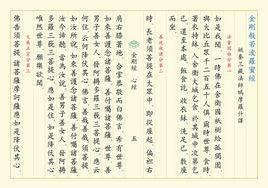 金剛般若波羅蜜經
姚秦三藏法師鳩摩羅什譯
法會因由分第一
如是我聞一時佛在舍衛國祇樹給孤獨園
與大比丘眾千二百五十人俱爾時世尊食時
著衣持鉢入舍衛大城乞食於其城中次第乞
已還至本處飯食訖收衣鉢洗足已敷座
而坐
善現啟請分第二
時長老須菩提在大眾中即從座起偏袒右
金剛經 心經 五
肩右膝著地合掌恭敬而白佛言希有世尊
如來善護念諸菩薩善付囑諸菩薩世尊善男
子善女人發阿耨多羅三藐三菩提心應云何住
云何降伏其心佛言善哉善哉須菩提如汝所說
如來善護念諸菩薩善付囑諸菩薩
汝今諦聽當為汝說善男子善女人發阿耨
多羅三藐三菩提心應如是住如是降伏其心
唯然世尊願樂欲聞
大乘正宗分第三
佛告須菩提諸菩薩摩訶薩應如是降伏其心